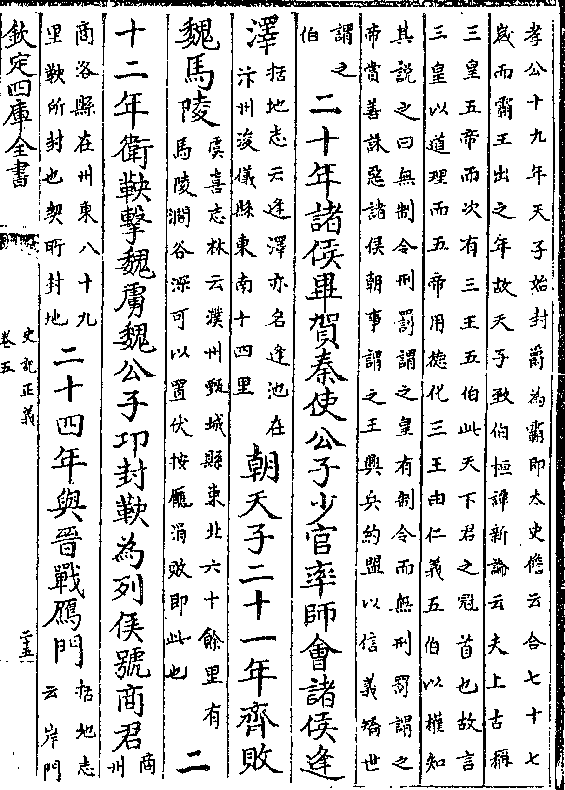 孝公十九年天子始封爵為霸即太史儋云合七十七
歲而霸王出之年故天子致伯桓譚新論云夫上古稱
三皇五帝而次有三王五伯此天下君之冠首也故言
三皇以道理而五帝用德化三王由仁義五伯以權知
其說之曰無制令刑罰謂之皇有制令而無刑罰謂之
帝賞善誅惡諸侯朝事謂之王興兵約盟以信義矯世
謂之
伯
二十年諸侯畢賀秦使公子少官率師會諸侯逢
澤
括地志云逢澤亦名逢池在
汴州浚儀縣東南十四里
朝天子二十一年齊敗
魏馬陵
虞喜志林云濮州甄城縣東北六十餘里有
馬陵澗谷深可以置伏按龐涓敗即此也
二
十二年衛鞅擊魏虜魏公子卬封鞅為列侯號商君
商
州
商洛縣在州東八十九
里鞅所封也契所封地
二十四年與晉戰鴈門
括地志
云岸門
欽定四庫全書
史記正義
卷五